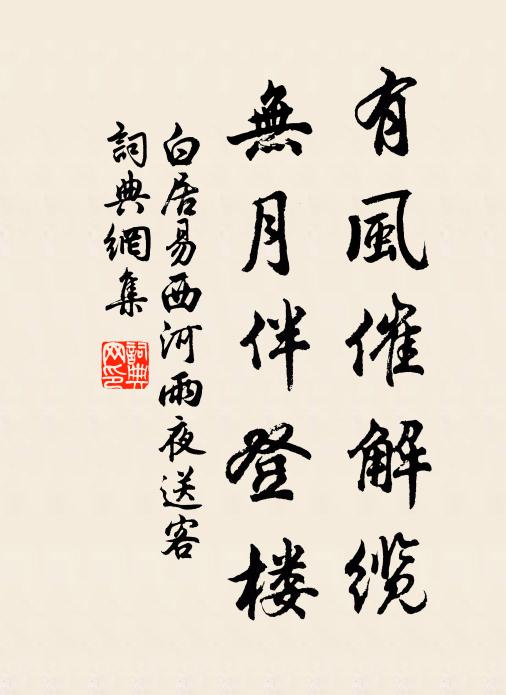 有風催解纜
無月伴登楼
白居易西河雨夜送客
詞典網集
詞典网印